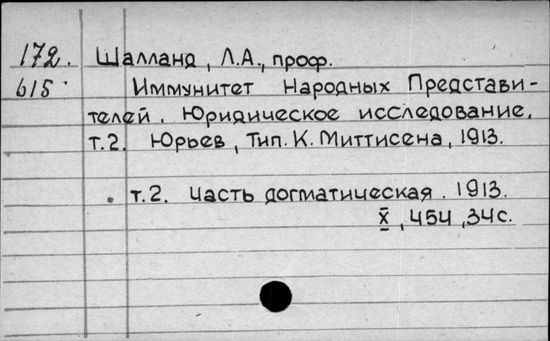 172. Шалланд, Л.А., проф.
615. Иммунитет Народных Представи-
телей. Юридическое исследование.
т.2. Юрьев, Тип. К. Миттисена, 1913.
т.2. Часть догматическая. 1913.
X, 454, 34с.